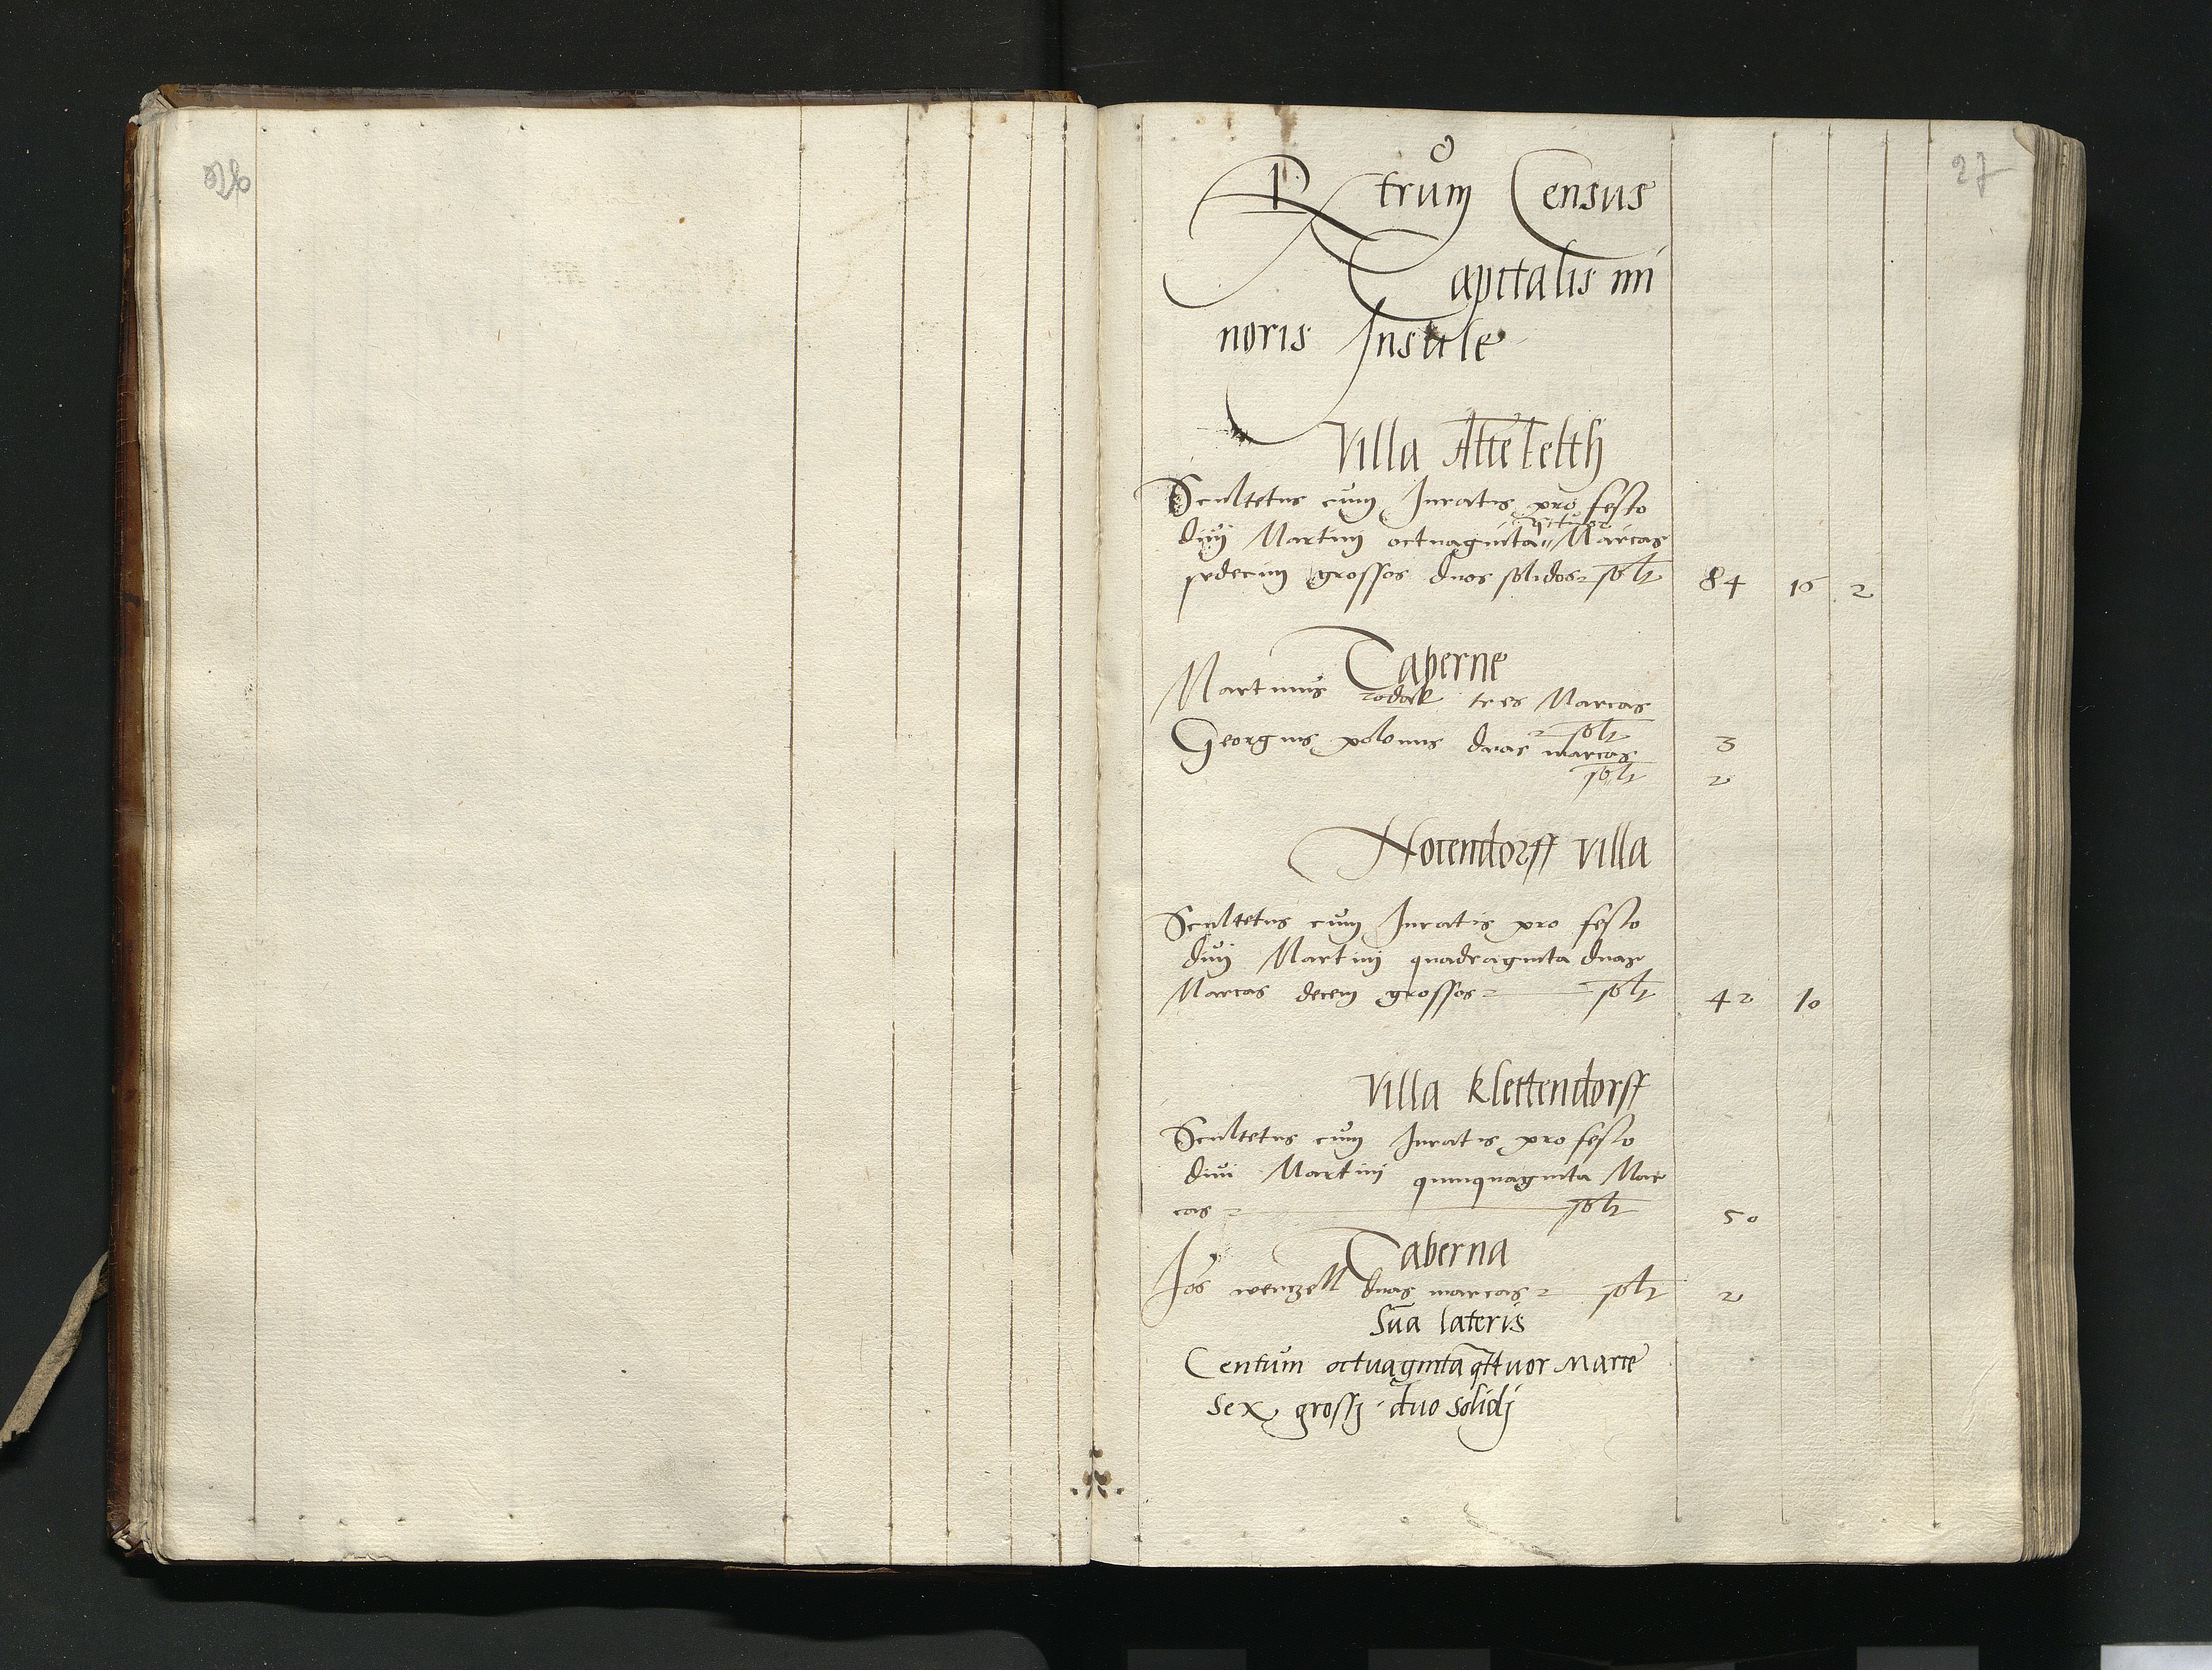 27
Rtrum Census
Capitalis mi
noris Insule
Villa Altelelth
Scultetus cum Iuratis pro festo
divi Martini octuaginta qttuor Marcas
sedecim grossos duos solidos solt 84 16 2
Taberne
Martinus rodak tres Marcas
solt 3
Georgius polonus duas marcas
solt 2
Notendorff villa
Scultetus cum Iuratis pro festo
divi Martini quadraginta duas
Marcas decem grossos solt 42 10
Villa Klettendorff
Scultetus cum Iuratis pro festo
divi Martini quinquaginta Mar
cas solt 50
Taberna
Jos wenczell duas marcas solt 2
Sua lateris
Centum octuaginta qttuor Marce
sex grossj duo solidj